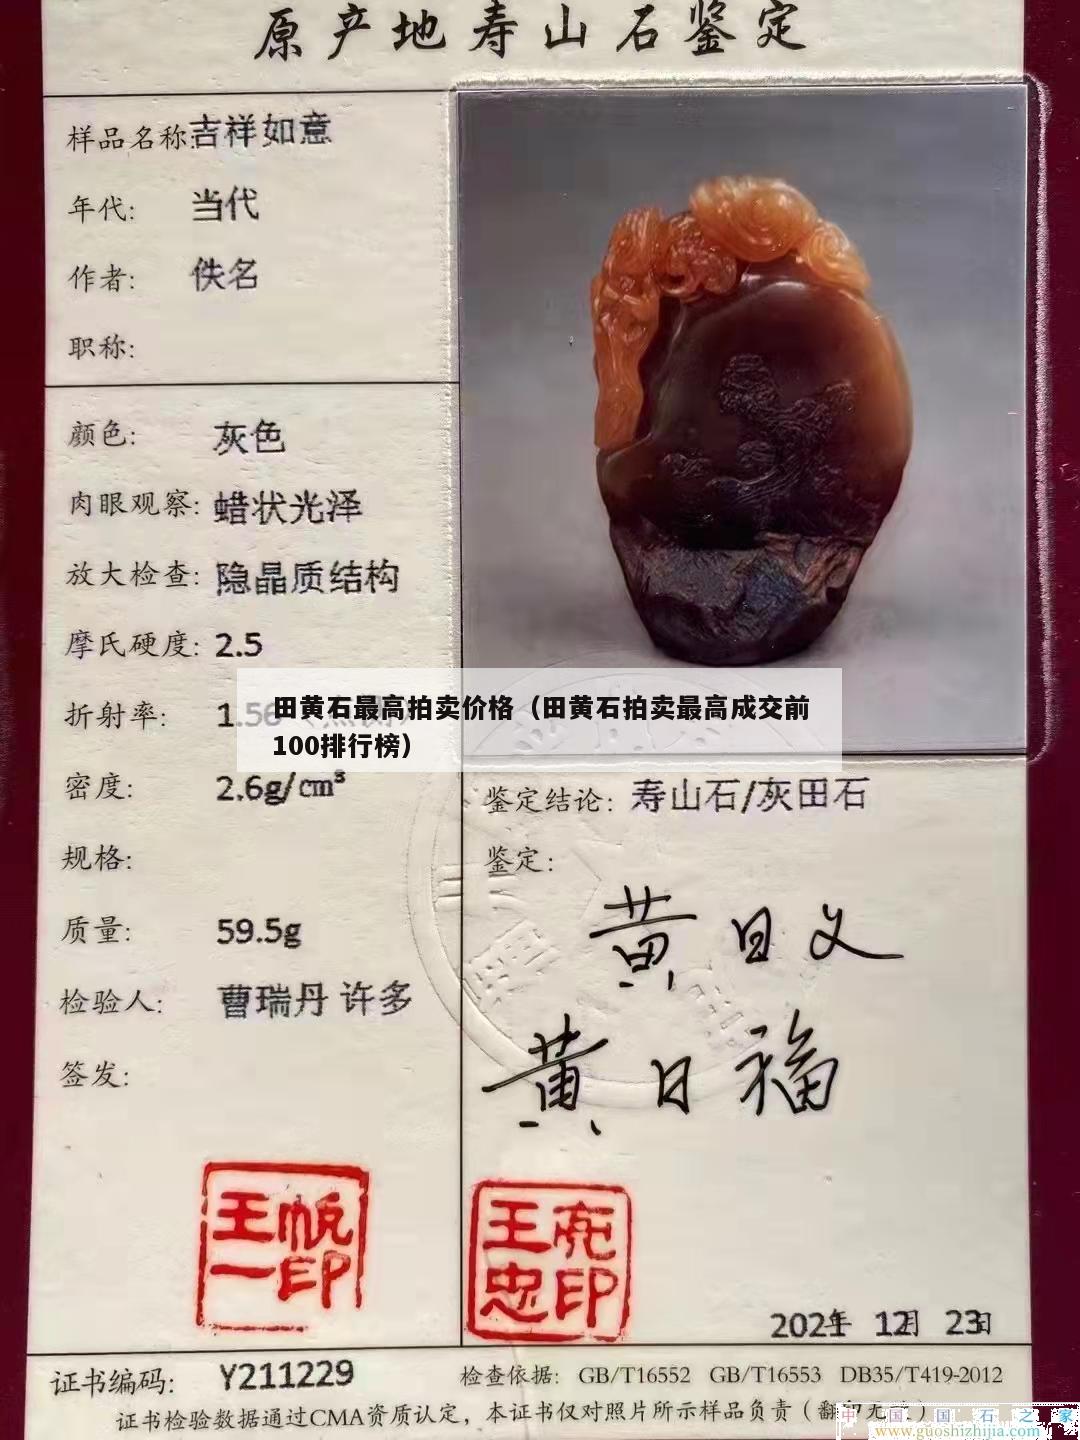 原产地寿山石鉴定
样品名称:吉祥如意
年代: 当代
作者: 佚名
职称:
颜色: 灰色
肉眼观察: 蜡状光泽
放大检查: 隐晶质结构
摩氏硬度: 2.5
折射率: 1.56
田黄石最高拍卖价格（田黄石拍卖最高成交前
100排行榜）
密度: 2.6g/cm³
规格:
质量: 59.5g
检验人: 曹瑞丹 许多
签发:
鉴定结论: 寿山石/灰田石
鉴定:
黄日文
黄日福
王帆
一印
王亮
忠印
2021年 12月 23日
证书编码: Y211229
检查依据: GB/T16552 GB/T16553 DB35/T419-2012
证书检验数据通过CMA资质认定，本证书仅对照片所示样品负责（翻印无效）
中国国石之家
www.guoshizhijia.com